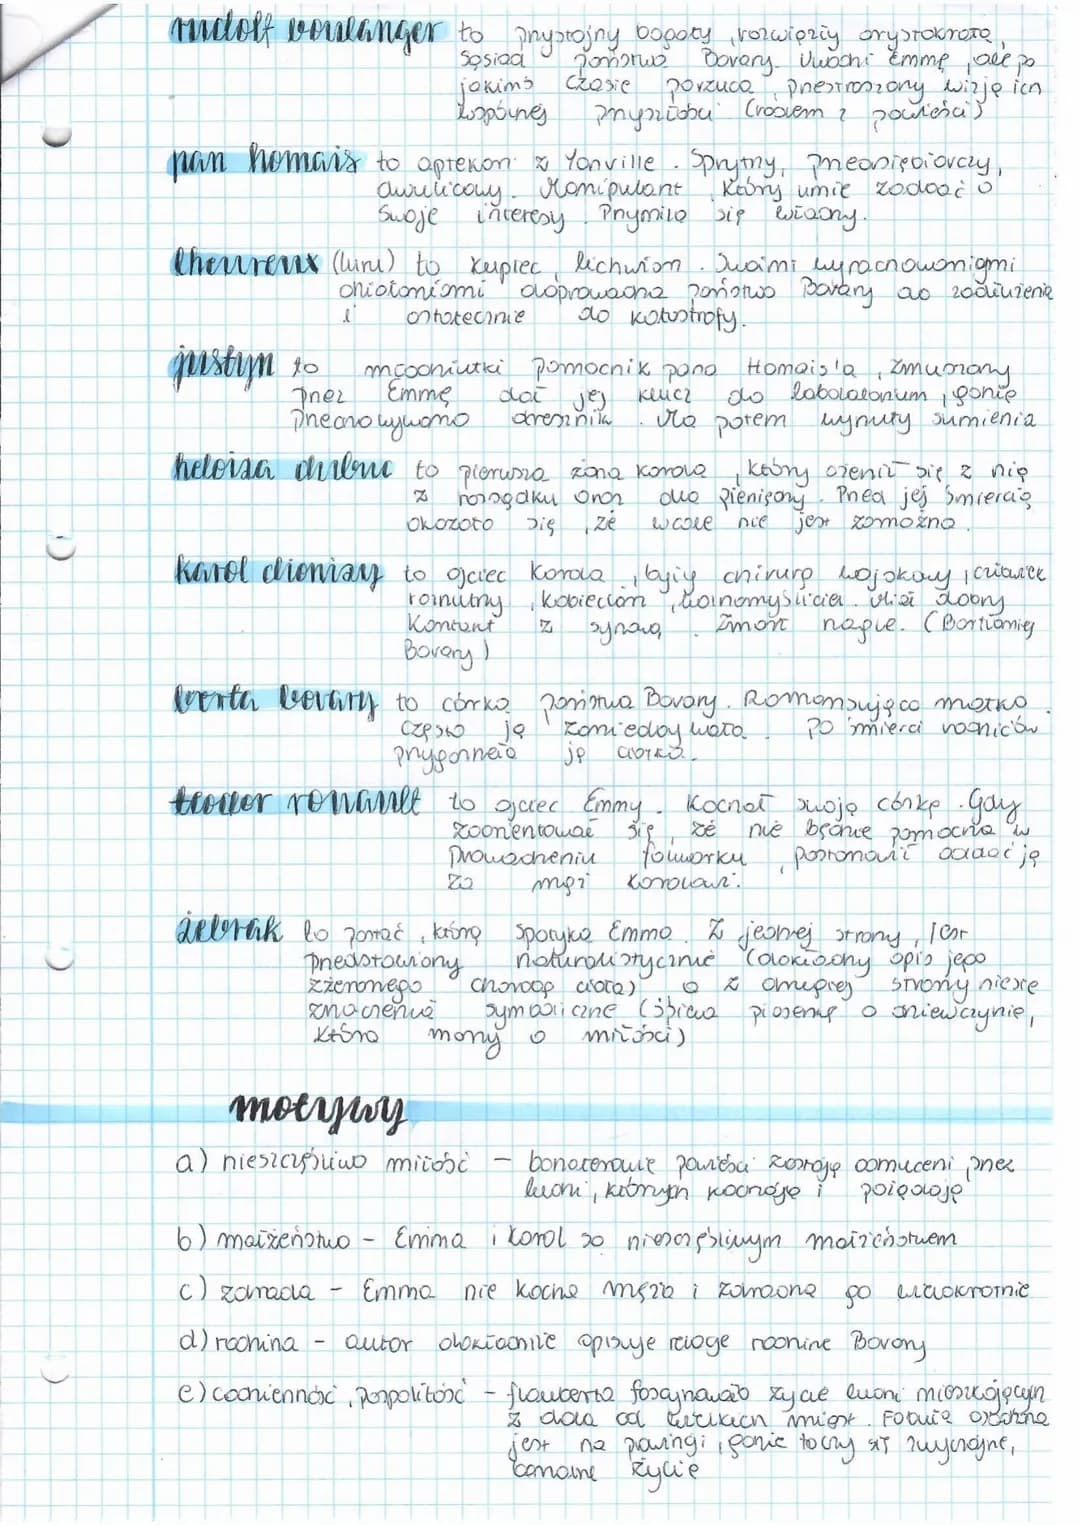 rudolf boulanger to przystojny bogaty, rozwięzły arystokrata,
sąsiad państwa Bovary. Uwodzi Emmę, ale po
jakimś czasie porzuca, przestraszony wizją ich
wspólnej przyszłości (rodem z powieści)
pan homais to aptekarz z Yonville. Sprytny, przedsiębiorczy,
dwulicowy. Manipulant, który umie zadbać o
swoje interesy. Przymila się władzy.
lheureux (lury) to kupiec, lichwiarz. Swoimi wyrachowanymi
działaniami doprowadza państwo Bovary do zadłużenia
i ostatecznie do katastrofy.
justyn to młodziutki pomocnik pana Homais'a, zmuszany
przez Emmę dał jej klucz do laboratorium, gdzie
przechowywano arszenik. Ma potem wyrzuty sumienia
heloiza dubuc to pierwsza żona Karola, który ożenił się z nią
z rozsądku oraz dla pieniędzy. Przed jej śmiercią
okazało się, że wcale nie jest zamożna.
karol dionizy to ojciec Karola, były chirurg wojskowy, człowiek
rozrzutny, kobieciarz, wolnomyśliciel. Miał dobry
kontakt z synową. Zmarł nagle. (Bartłomiej
Bovary)
berta bovary to córka państwa Bovary. Romansująca matka
często ją zaniedbywała. Po śmierci rodziców
przygarnęła ją ciotka.
teodor rouault to ojciec Emmy. Kochał swoją córkę. Gdy
zorientował się, że nie będzie pomocna w
prowadzeniu folwarku, postanowił oddać ją
za mąż Karolowi.
żebrak to postać, którą spotyka Emma. Z jednej strony, jest
przedstawiony naturalistycznie (dokładny opis jego
zżeranego chorobą ciała) a z drugiej strony niesie
znaczenie symboliczne (śpiewa piosenkę o dziewczynie,
która marzy o miłości)
motywy
a) nieszczęśliwa miłość – bohaterowie powieści zostają odrzuceni przez
ludzi, których kochają i pożądają
b) małżeństwo – Emma i Karol są nieszczęśliwym małżeństwem
c) zdrada – Emma nie kocha męża i zdradza go wielokrotnie
d) rodzina – autor dokładnie opisuje relacje rodzinne Bovary
e) codzienność, pospolitość – flauberta fascynowało życie ludzi mieszkających
z dala od wielkich miast. Fabuła osadzona
jest na prowincji, gdzie toczy się zwyczajne,
banalne życie